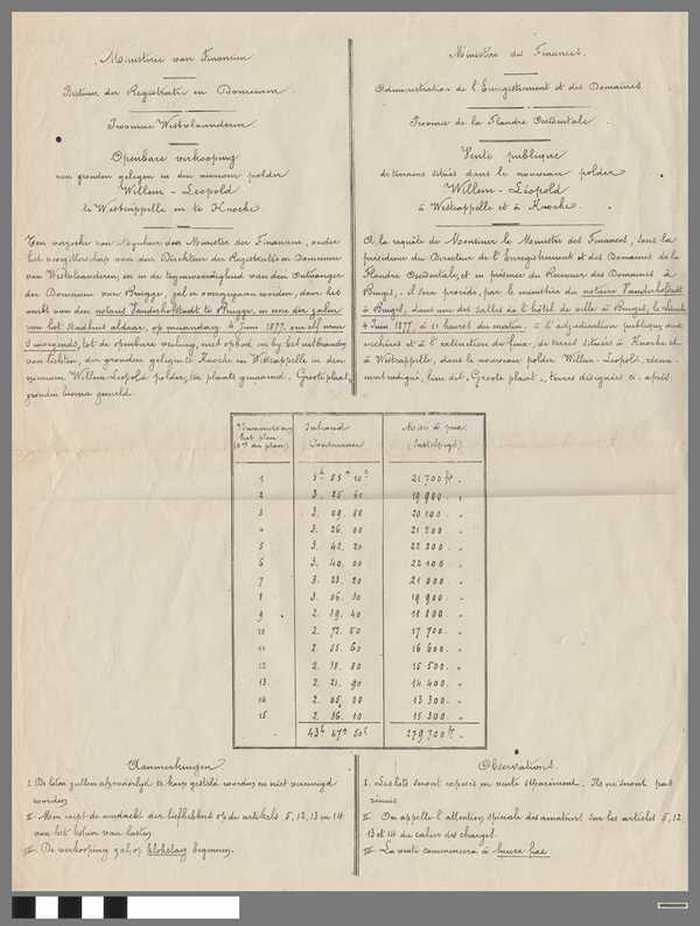 Ministerie van Financiën
Bestuur der Registratie en Domeinen.
Provincie Westvlaanderen
Openbare verkooping
van gronden gelegen in den nieuwen polder
Willem - Leopold
te Westcappelle en te Knocke
Ten verzoeke van Mynheer den Minister der Financien, onder
het voorzitterschap van den Direkteur der Registratie en Domeinen
van Westvlaanderen, en in de tegenwoordigheid van den Ontvanger
der Domeinen van Brugge, zal er overgegaan worden, door het
ambt van den notaris Vanderhofstadt te Brugge, in eene der zalen
van het Stadhuis aldaar, op maandag 4 Juni 1877, om elf uren
's morgends, tot de openbare veiling, met opbod en by het uitbranden
van lichten, der gronden gelegen te Knocke en Westcappelle in den
nieuwen Willem-Leopold polder, ter plaats genaamd: Groote plaat,
gronden hierna gemeld
Ministère des Finances.
Administration de l'Enregistrement et des Domaines
Province de la Flandre Occidentale.
Vente publique
de terrains situés dans le nouveau polder
Willem - Léopold
à Westcappelle et à Knocke.
A la requête de Monsieur le Ministre des Finances, sous la
présidence du Directeur de l'Enregistrement et des Domaines de la
Flandre Occidentale, et en présence du Receveur des Domaines à
Bruges, il sera procédé, par le ministère du notaire Vanderhofstadt
à Bruges, dans une des salles de l'hôtel de ville à Bruges, le Lundi
4 Juin 1877, à 11 heures du matin, à l'adjudication publique aux
enchères et à l'extinction de feux, de terres situées à Knocke et
à Westcappelle, dans le nouveau polder Willem-Leopold,
lieu dit "Groote plaat", terres désignées ci-après
Nummers van het plan (Nos du plan) Inhoud Contenance Mise à prix (Instelprijs)
1 3h 35a 10c 21700 fr.
2 3. 25 60 19,900 "
3 3. 09. 80 20 100 "
4 3. 26. 00 21 200 "
5 3. 42. 20 22 200 "
6 3. 40. 00 22 100 "
7 3. 23. 20 21 000 "
8 3. 06. 30 19 900 "
9 2. 89. 40 18 800 "
10 2. 72. 50 17 700 "
11 2. 55. 60 16 600 "
12 2. 38. 80 15 500 "
13 2. 21. 90 14 400 "
14 2. 05. 00 13 300 "
15 2. 36. 10 15 300 "
43h 47a 50c 279,700 fr.
Aanmerkingen
I. De loten zullen afzonderlyk te koop gesteld worden en niet vereenigd
worden
II. Men roept de aandacht der liefhebbers op de artikels 5, 12, 13 en 14
van het kohier van lasten
III. De verkooping zal op klokslag beginnen.
Observations.
I. Les lots seront exposés en vente séparément. Ils ne seront pas
réunis
II. On appelle l'attention spéciale des amateurs sur les articles 5, 12,
13 et 14 du cahier des charges.
III. La vente commencera à heure fixe